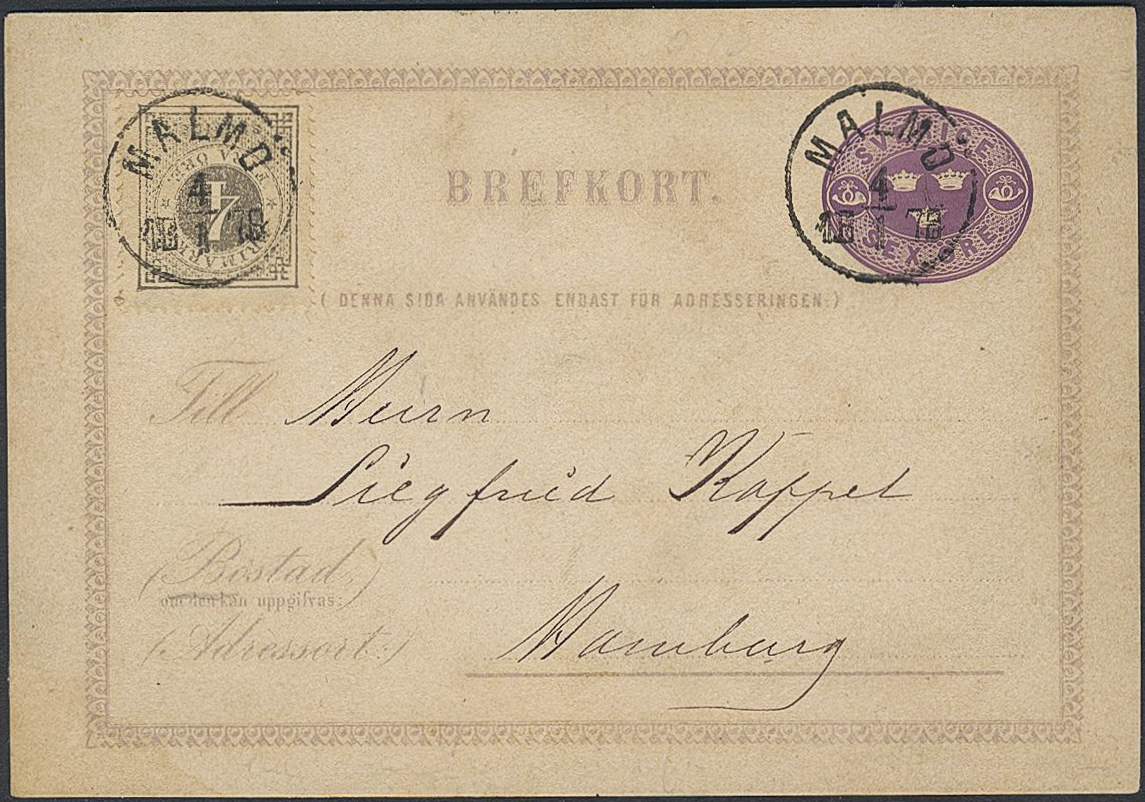 MALMÖ
4
18 1 78
FYRA ÖRE
FRIMÄRKE
4
BREFKORT.
MALMÖ
4
18 1 78
SVERIGE
SEX ÖRE
( DENNA SIDA ANVÄNDES ENDAST FÖR ADRESSERINGEN.)
Till Herrn
Siegfried Kappel
(Bostad,
om den kan uppgifvas:)
(Adressort:) Hamburg